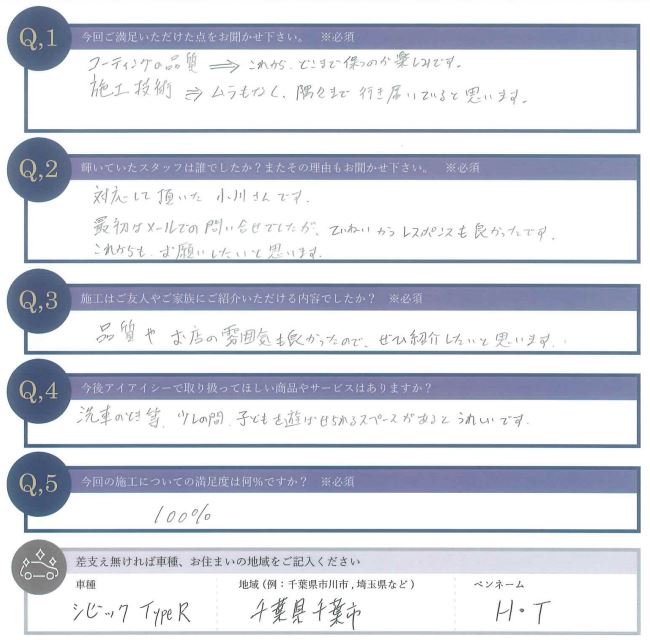 Q,1 今回ご満足いただけた点をお聞かせ下さい。 ※必須
コーティングの品質 ⇒ これから、どこまで保つのか楽しみです。
施工技術 ⇒ ムラもなく、隅々まで行き届いていると思います。
Q,2 輝いていたスタッフは誰でしたか？またその理由もお聞かせ下さい。 ※必須
対応して頂いた 小川さんです。
最初はメールでの問い合せでしたが、ていねいかつレスポンスも良かったです。
これからも、お願いしたいと思います。
Q,3 施工はご友人やご家族にご紹介いただける内容でしたか？ ※必須
品質や お店の雰囲気も良かったので、ぜひ紹介したいと思います。
Q,4 今後アイアイシーで取り扱ってほしい商品やサービスはありますか？
洗車のとき等、少しの間、子どもを遊ばせられるスペースがあると うれしいです。
Q,5 今回の施工についての満足度は何%ですか？ ※必須
100%
差支え無ければ車種、お住まいの地域をご記入ください
車種 地域（例：千葉県市川市，埼玉県など） ペンネーム
シビック TypeR 千葉県千葉市 H・T